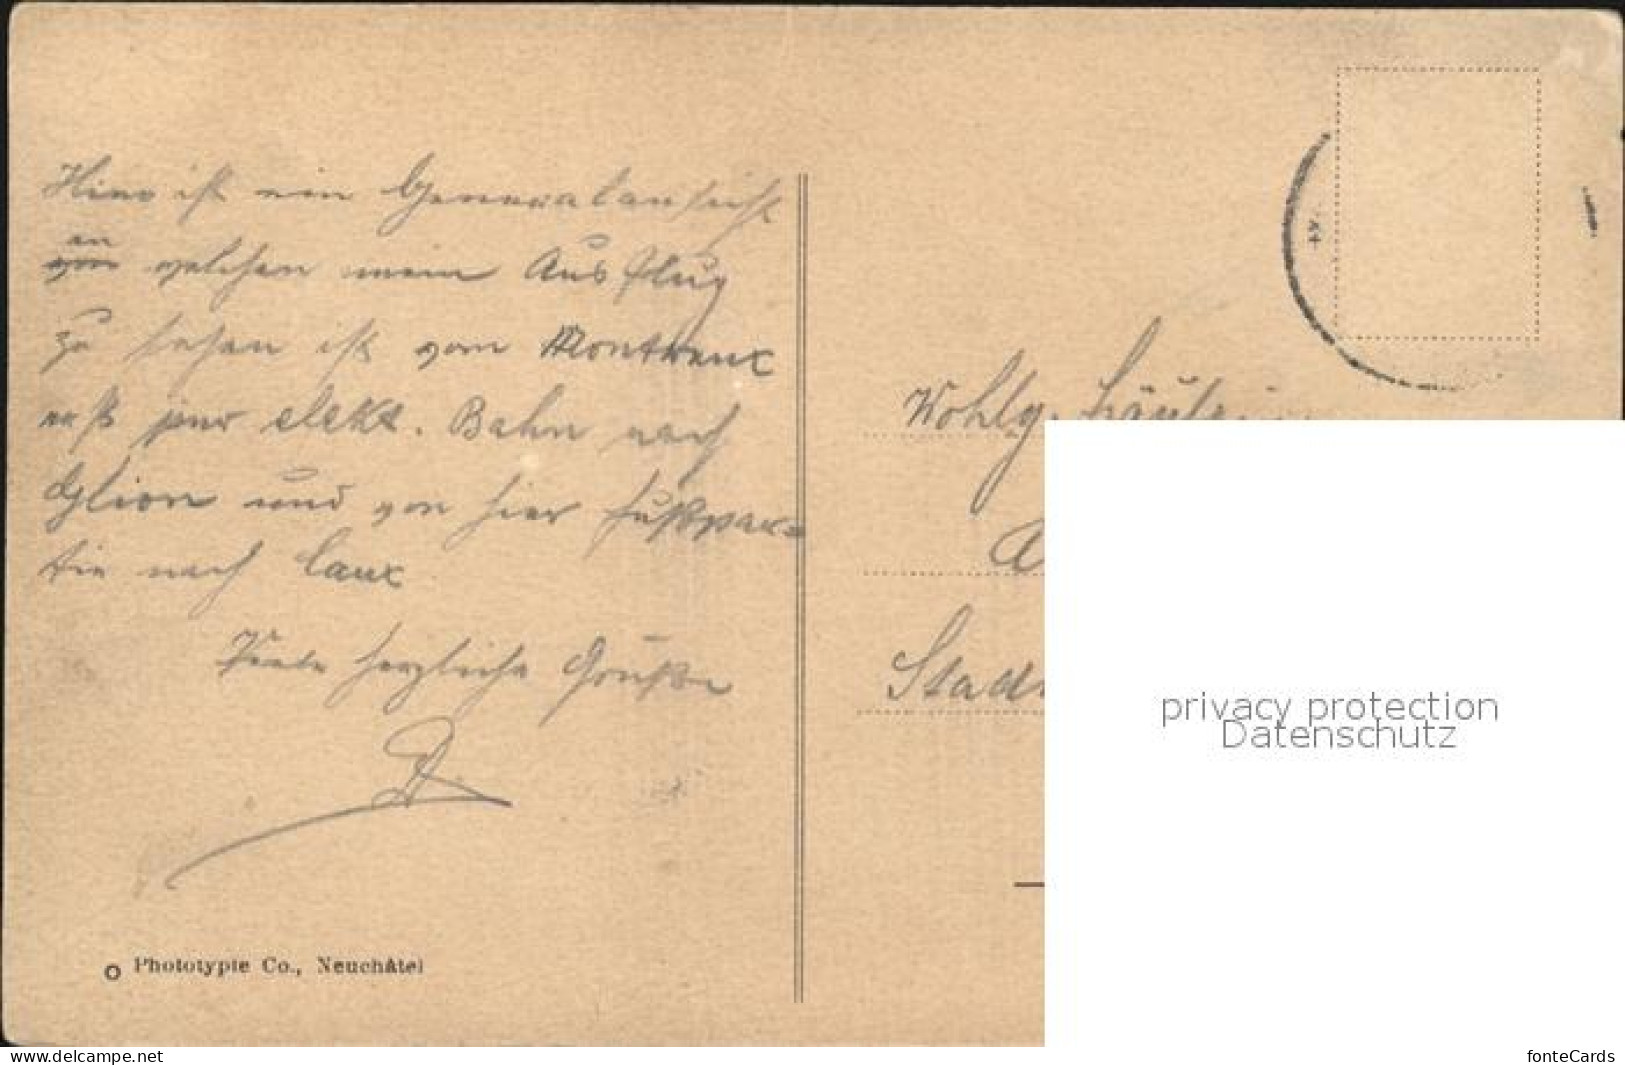 Hier ist ein Generalansicht
an
von welchen mein Ausflug
zu sehen ist von Montreux
aus per elekt. Bahn nach
Glion und von hier Fußpar-
tie nach Caux
Viele herzliche Grüße
Wohlg. Fräulein
Stad
Phototypie Co., Neuchâtel
privacy protection
Datenschutz
www.delcampe.net
fonteCards